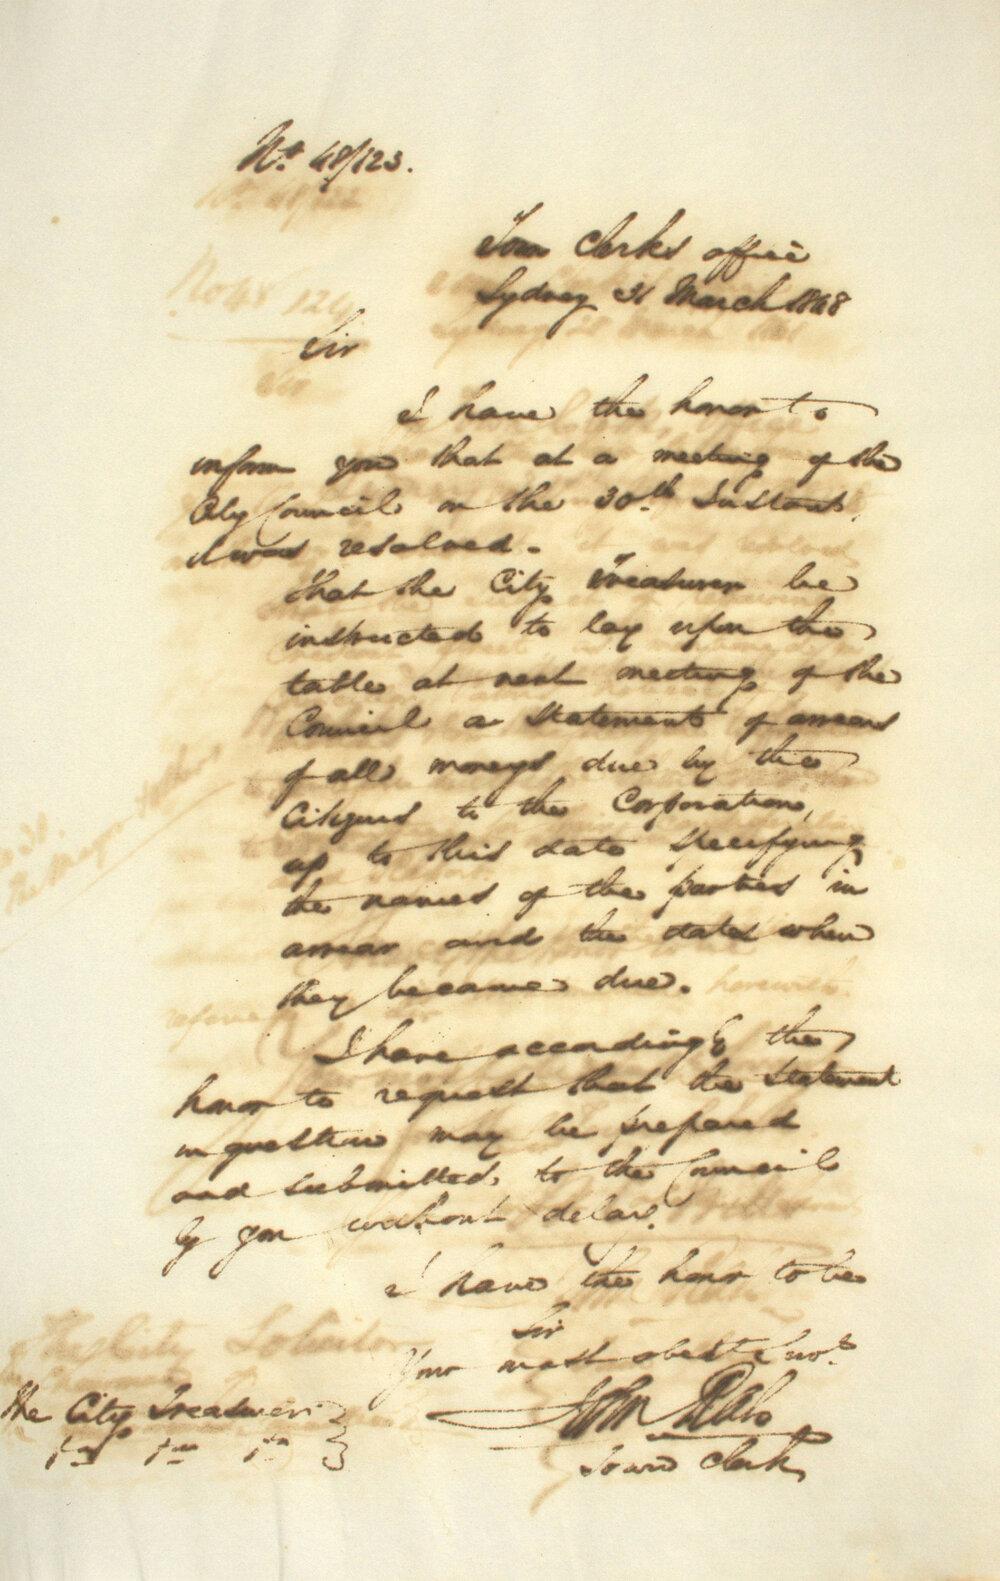 No 48/123.
Town Clerks office
Sydney 31 March 1848
Sir
I have the honor to
inform you that at a meeting of the
City Council on the 30th Instant
it was resolved.
That the City Treasurer be
instructed to lay upon the
table at next meeting of the
Council a Statement of arrears
of all moneys due by the
Citizens to the Corporation,
up to this date specifying
the names of the parties in
arrear and the dates when
they became due.
I have accordingly the
honor to request that the Statement
in question may be prepared
and submitted, to the Council
by you without delay.
I have the honor to be
Sir
Your most obedt Servt
John Rae
Town Clerk
The City Treasurer